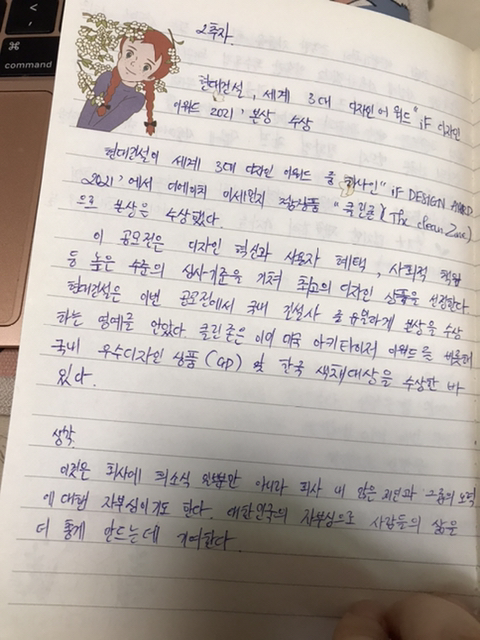 command
2주차.
현대건설, 세계 3대 디자인어워드 "iF 디자인
어워드 2021' 본상 수상
현대건설이 세계 3대 디자인 어워드 중 하나인 "iF DESIGN AWARD
2021'에서 디에이치 미세먼지 저감상품 "클린존 (The clean Zone)
으로 본상을 수상했다.
이 공모전은 디자인 혁신과 사용자 혜택, 사회적 책임
등 높은 수준의 심사기준을 거쳐 최고의 디자인 상품을 선정한다
현대건설은 이번 공모전에서 국내 건설사 중 유일하게 본상을 수상
하는 영예를 안았다. 클린존은 이미 미국 아키타이저 어워드를 비롯해
국내 우수디자인 상품(GD) 및 한국 색채대상을 수상한 바
있다.
생각
이것은 회사에 희소식 일뿐만 아니라 회사 내 많은 그룹의 노력
에 대한 자부심이기도 한다. 대한민국의 자부심으로 사람들의 삶은
더 좋게 만드는데 기여한다.